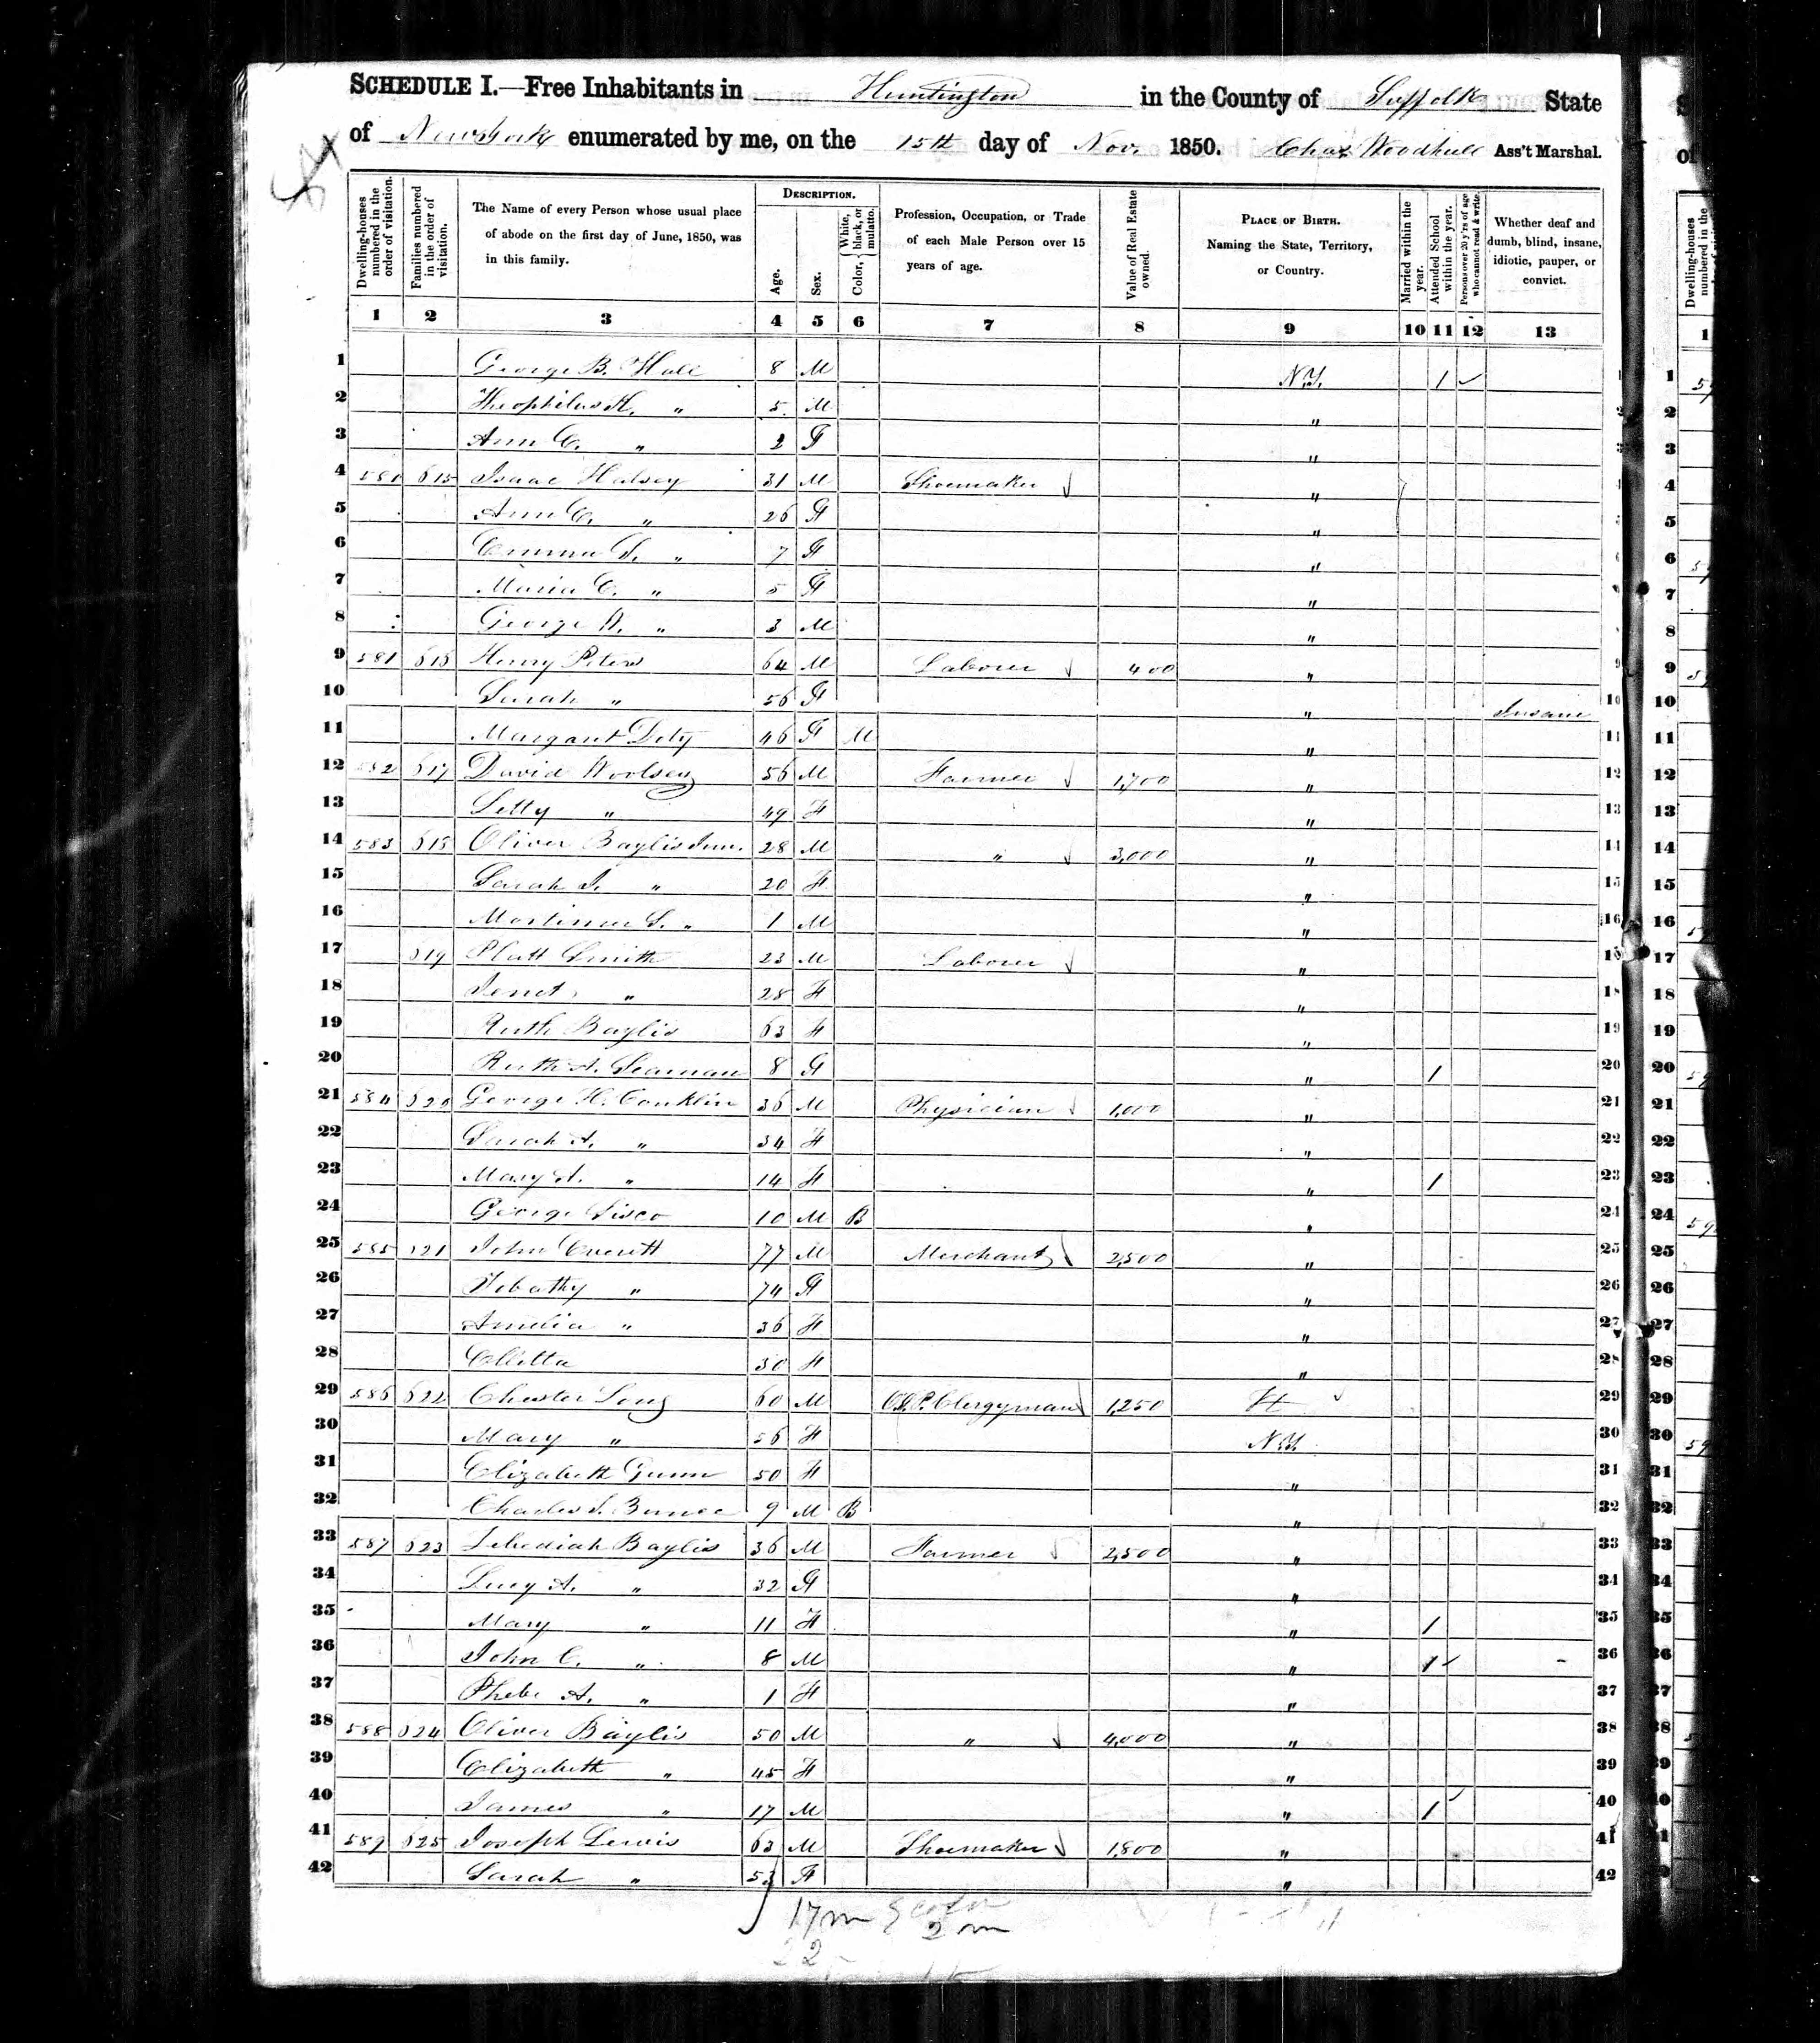 SCHEDULE I.—Free Inhabitants in Huntington in the County of Suffolk State
of New York enumerated by me, on the 15th day of Nov. 1850. Chas Woodhull Ass't Marshal.
Dwelling-houses numbered in the order of visitation.
Families numbered in the order of visitation.
The Name of every Person whose usual place of abode on the first day of June, 1850, was in this family.
DESCRIPTION.
Age.
Sex.
Color, { White, black, or mulatto.
Profession, Occupation, or Trade of each Male Person over 15 years of age.
Value of Real Estate owned.
PLACE OF BIRTH. Naming the State, Territory, or Country.
Married within the year.
Attended School within the year.
Persons over 20 y'rs of age who cannot read & write.
Whether deaf and dumb, blind, insane, idiotic, pauper, or convict.
1 2 3 4 5 6 7 8 9 10 11 12 13
1 George B. Hall 8 M N.Y. 1 1
2 Theophilus H. " 5 M " 2
3 Ann C. " 2 F " 3
4 580 615 Isaac Halsey 31 M Shoemaker " 4
5 Ann C. " 26 F " 5
6 Emma S. " 7 F " 6
7 Maria C. " 5 F " 7
8 George W. " 3 M "
9 581 616 Henry Peters 64 M Laborer 400 " 9
10 Sarah " 56 F " Insane 10
11 Margaret 46 F M " 11
12 582 617 David Woolsey 56 M Farmer 1,700 " 12
13 Letty " 49 F " 13
14 583 618 Oliver Baylis Junr. 28 M " 3,000 " 14
15 Sarah J. " 20 F " 15
16 Mortimer S. " 1 M " 16
17 619 Platt Smith 23 M Laborer "
18 " 28 F " 18
19 Ruth Baylis 63 F " 19
20 Ruth A. Seaman 8 F " 1 20
21 584 620 George H. Conklin 36 M Physician 1,000 " 21
22 Sarah A. " 34 F " 22
23 Mary A. " 14 F " 1 23
24 George Sisco 10 M B " 24
25 585 621 John Everett 77 M Merchant 2,500 " 25
26 " 74 F " 26
27 Amelia " 36 F " 27
28 Elletta 30 F " 28
29 586 622 Chester Long 60 M Clergyman 1,250 29
30 Mary " 56 F N.Y. 30
31 Elizabeth Gunn 50 F " 31
32 Charles S. 9 M B " 32
33 587 623 Baylis 36 M Farmer 2,500 " 33
34 Lucy A. " 32 F " 34
35 Mary " 11 F " 1 35
36 John C. " 8 M " 1 36
37 Phebe A. " 1 F " 37
38 588 624 Oliver Baylis 50 M " 4,000 " 38
39 Elizabeth " 45 F " 39
40 James " 17 M " 1 40
41 589 625 Joseph Lewis 63 M Shoemaker 1,800 " 41
42 Sarah " 53 F " 42
17 m
2 m
22